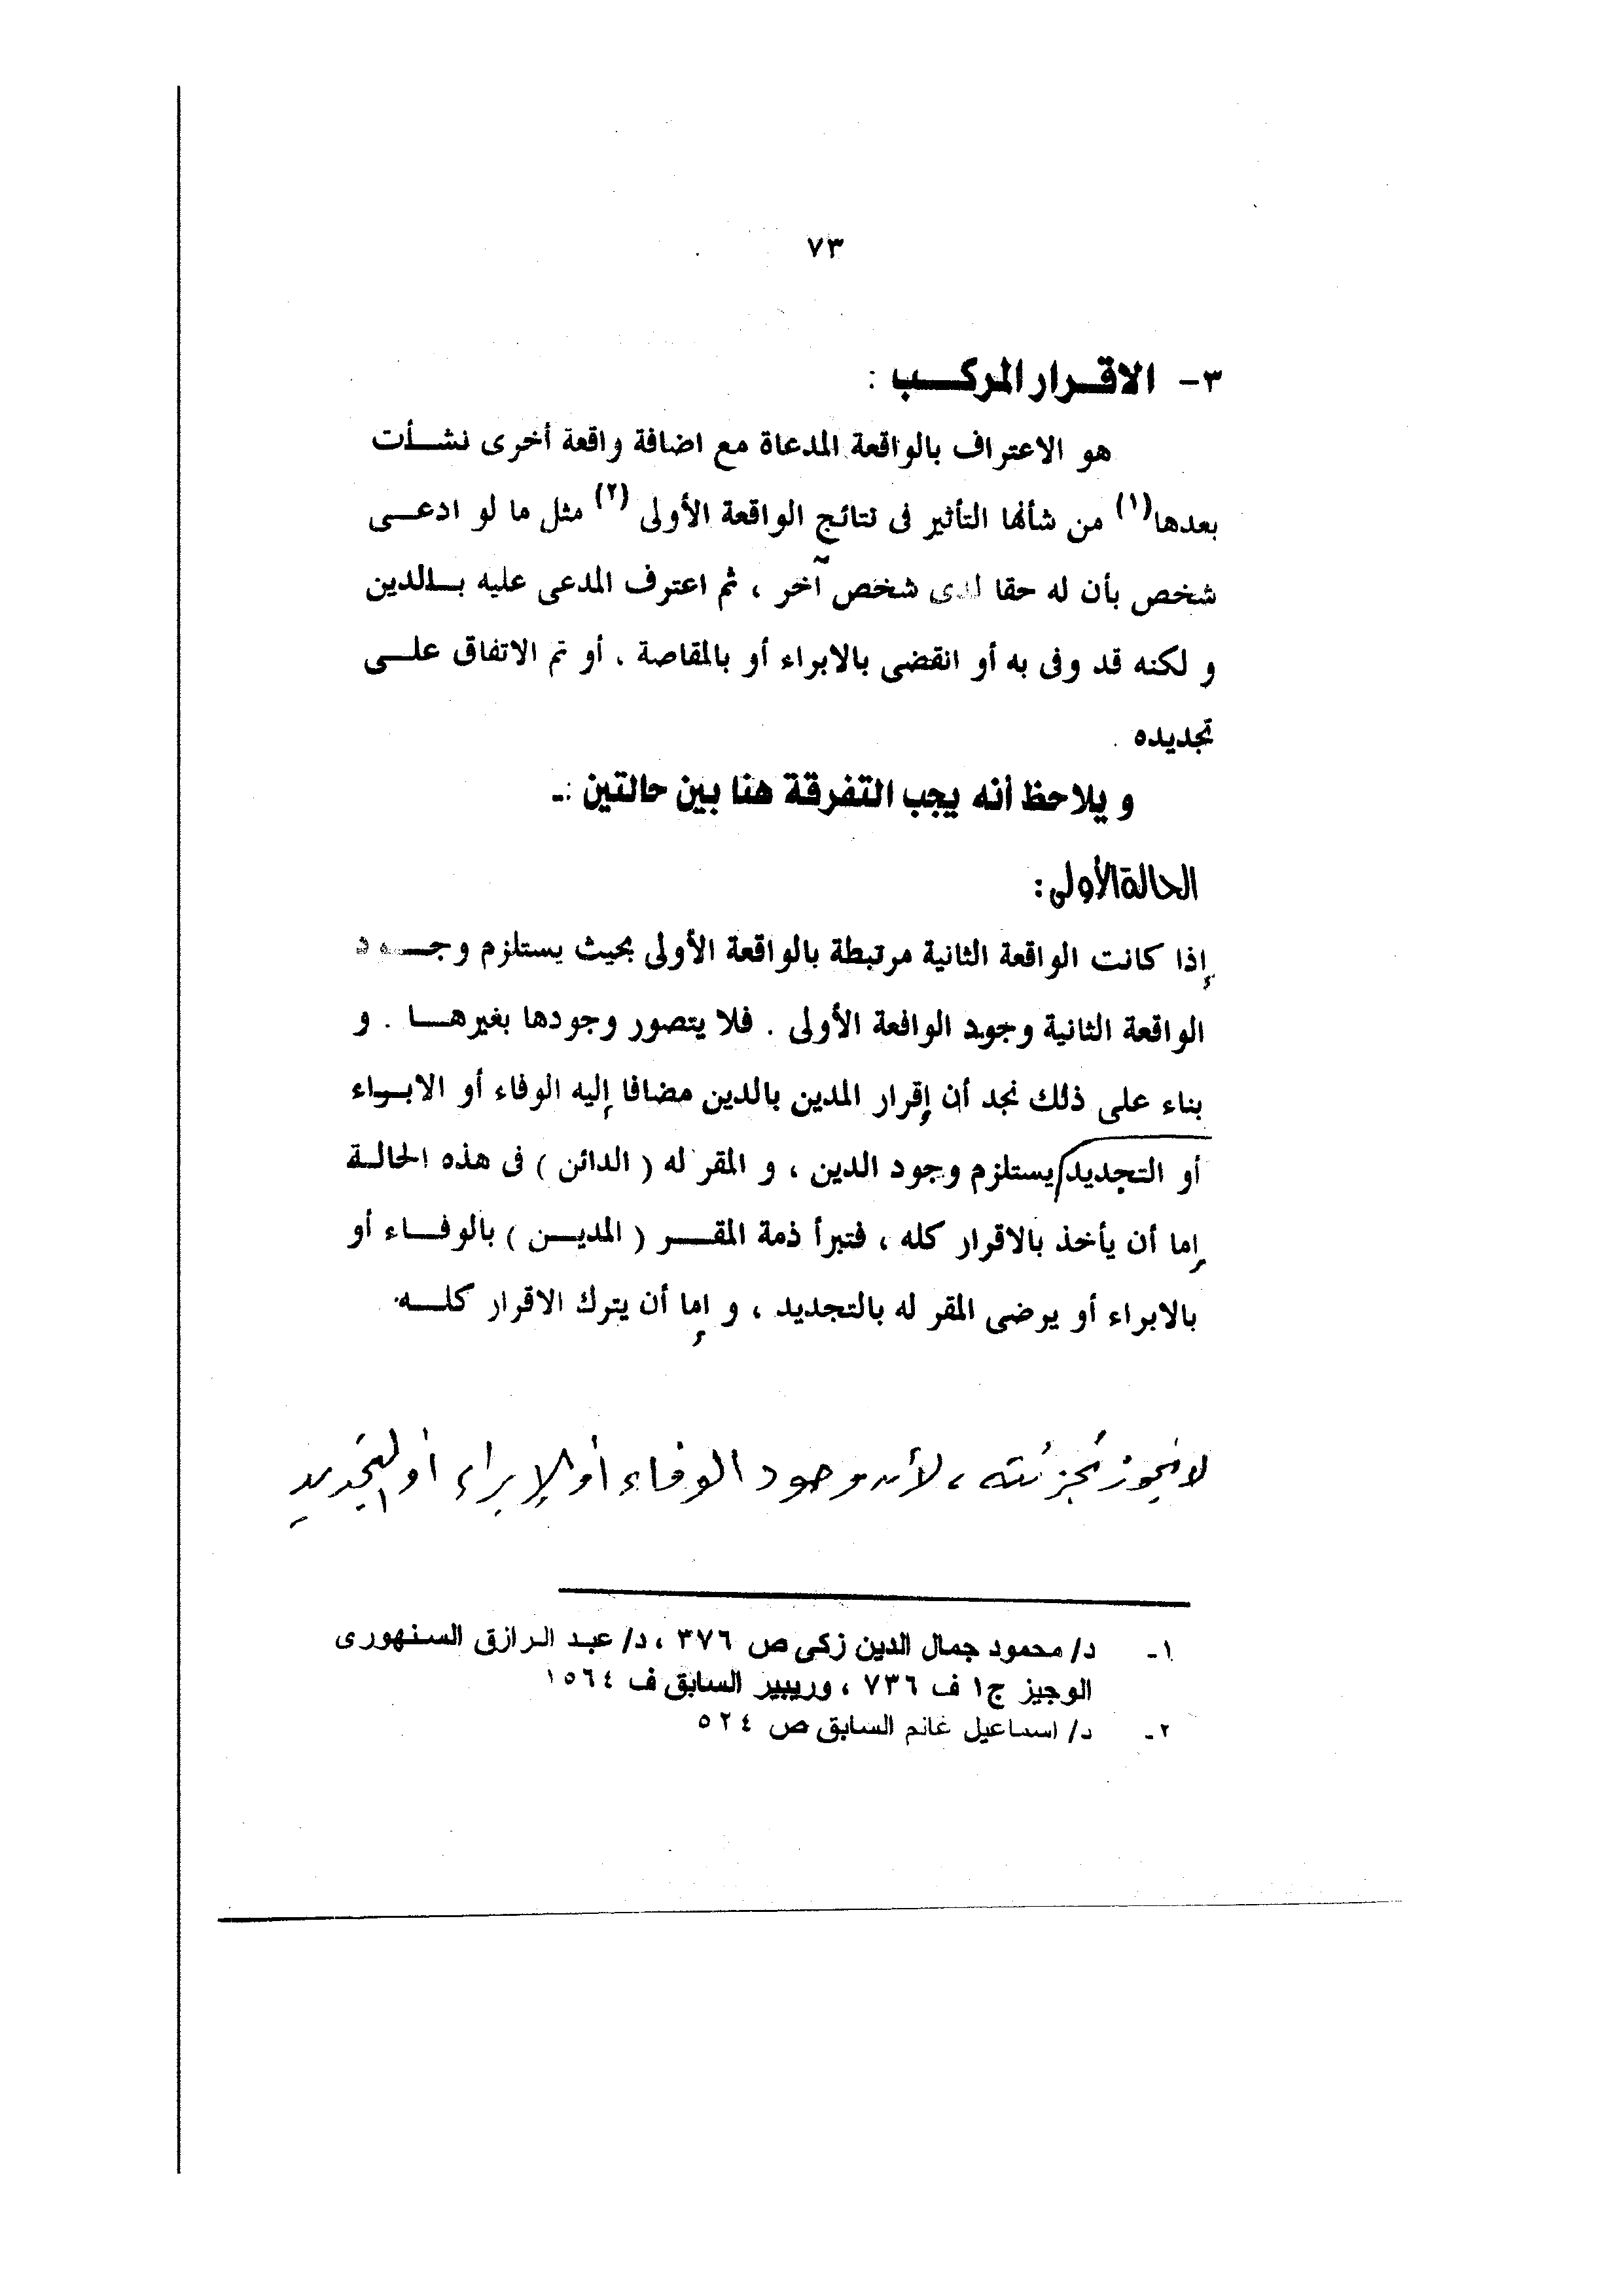 ٧٣
٣- الاقرار المركب :
هو الاعتراف بالواقعة المدعاة مع اضافة واقعة أخرى نشأت
بعدها(١) من شأنها التأثير فى نتائج الواقعة الأولى (٢) مثل ما لو ادعى
شخص بأن له حقا لدى شخص آخر ، ثم اعترف المدعى عليه بالدين
و لكنه قد وفى به أو انقضى بالابراء أو بالمقاصة . أو تم الاتفاق على
تجديده .
و يلاحظ أنه يجب التفرقة هنا بين حالتين :ـ
الحالة الأولى :
إذا كانت الواقعة الثانية مرتبطة بالواقعة الأولى بحيث يستلزم وجود
الواقعة الثانية وجود الواقعة الأولى . فلا يتصور وجودها بغيرها . و
بناء على ذلك نجد أن إقرار المدين بالدين مضافا إليه الوفاء أو الابراء
أو التجديد يستلزم وجود الدين ، و المقر له ( الدائن ) فى هذه الحالة
إما أن يأخذ بالاقرار كله ، فتبرأ ذمة المقر ( المدين ) بالوفاء أو
بالابراء أو يرضى المقر له بالتجديد ، و إما أن يترك الاقرار كله.
لا يجوز تجزئته ، لأن وجود الوفاء أو الإبراء أو التجديد
١ـ د/ محمود جمال الدين زكى ص ٣٧٦ ، د/ عبد الرازق السنهورى
الوجيز ج١ ف ٧٣٦ ، وريبير السابق ف ١٥٦٤
٢ـ د/ اسماعيل غانم السابق ص ٥٢٤